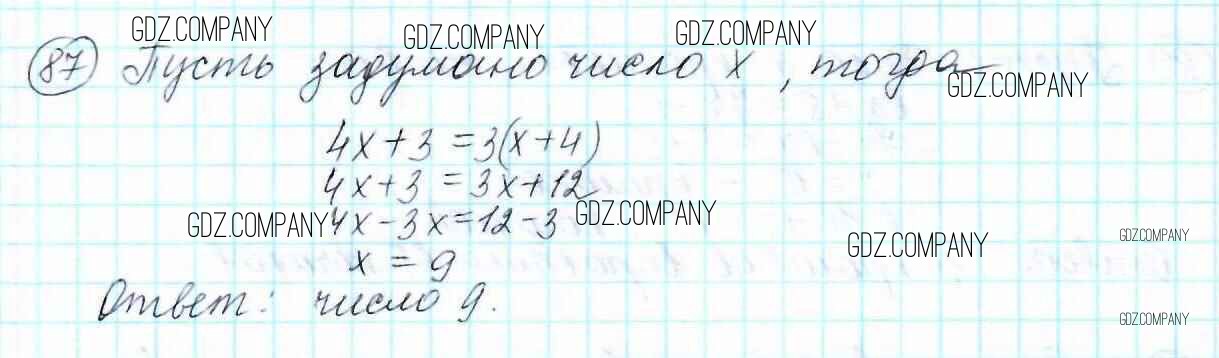 GDZ.COMPANY GDZ.COMPANY GDZ.COMPANY
87 Пусть задумано число x, тогда
GDZ.COMPANY
4x+3=3(x+4)
4x+3=3x+12
GDZ.COMPANY 4x-3x=12-3 GDZ.COMPANY
GDZ.COMPANY GDZ.COMPANY
x=9
Ответ: число 9.
GDZ.COMPANY